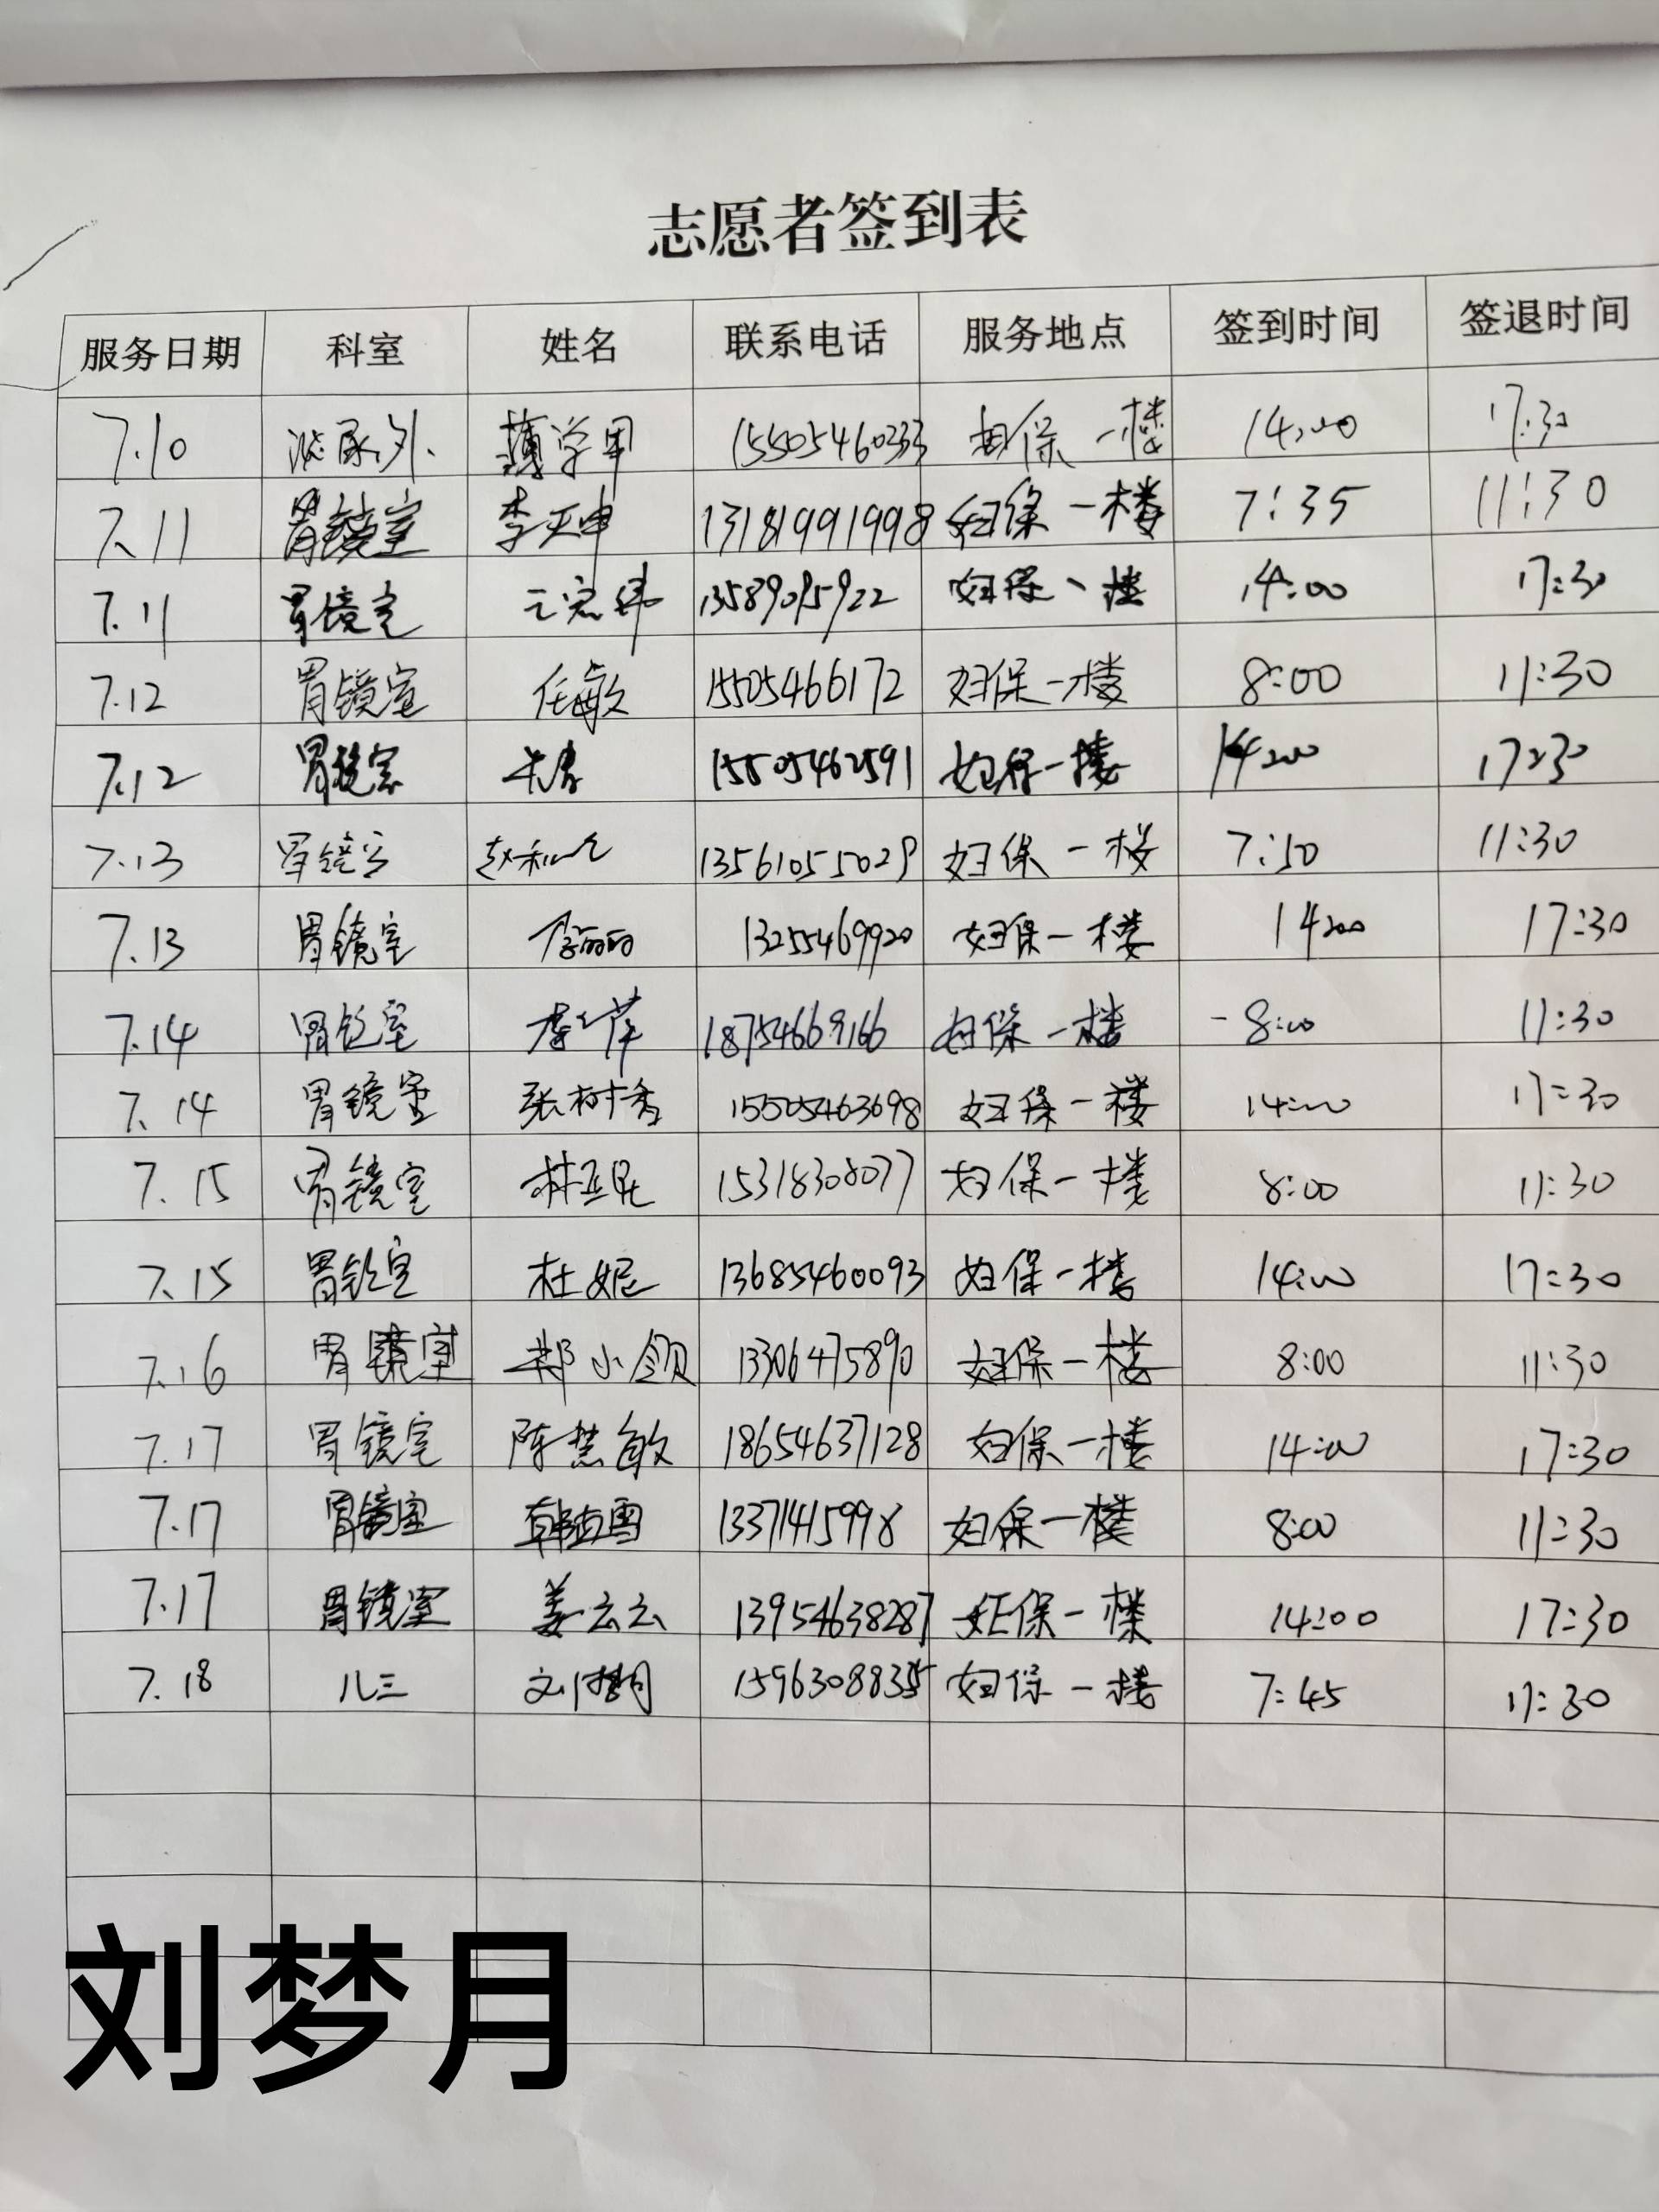 志愿者签到表
服务日期 科室 姓名 联系电话 服务地点 签到时间 签退时间
7.10 泌尿外 薄学军 15505460233 妇保一楼 14:00 17:30
7.11 胃镜室 李天申 13181991998 妇保一楼 7:35 11:30
7.11 胃镜室 13589095922 妇保一楼 14:00 17:30
7.12 胃镜室 任敏 15505466172 妇保一楼 8:00 11:30
7.12 胃镜室 15505462591 妇保一楼 14:00 17:30
7.13 胃镜室 13561055029 妇保一楼 7:50 11:30
7.13 胃镜室 13255469920 妇保一楼 14:00 17:30
7.14 胃镜室 18754669166 妇保一楼 8:00 11:30
7.14 胃镜室 张树香 15505463698 妇保一楼 14:00 17:30
7.15 胃镜室 15318308077 妇保一楼 8:00 11:30
7.15 胃镜室 杜妮 13685460093 妇保一楼 14:00 17:30
7.16 胃镜室 郑小领 13306475890 妇保一楼 8:00 11:30
7.17 胃镜室 陈慧敏 18654637128 妇保一楼 14:00 17:30
7.17 胃镜室 13371415998 妇保一楼 8:00 11:30
7.17 胃镜室 姜云云 13954638287 妇保一楼 14:00 17:30
7.18 儿三 15963088335 妇保一楼 7:45 11:30
刘梦月